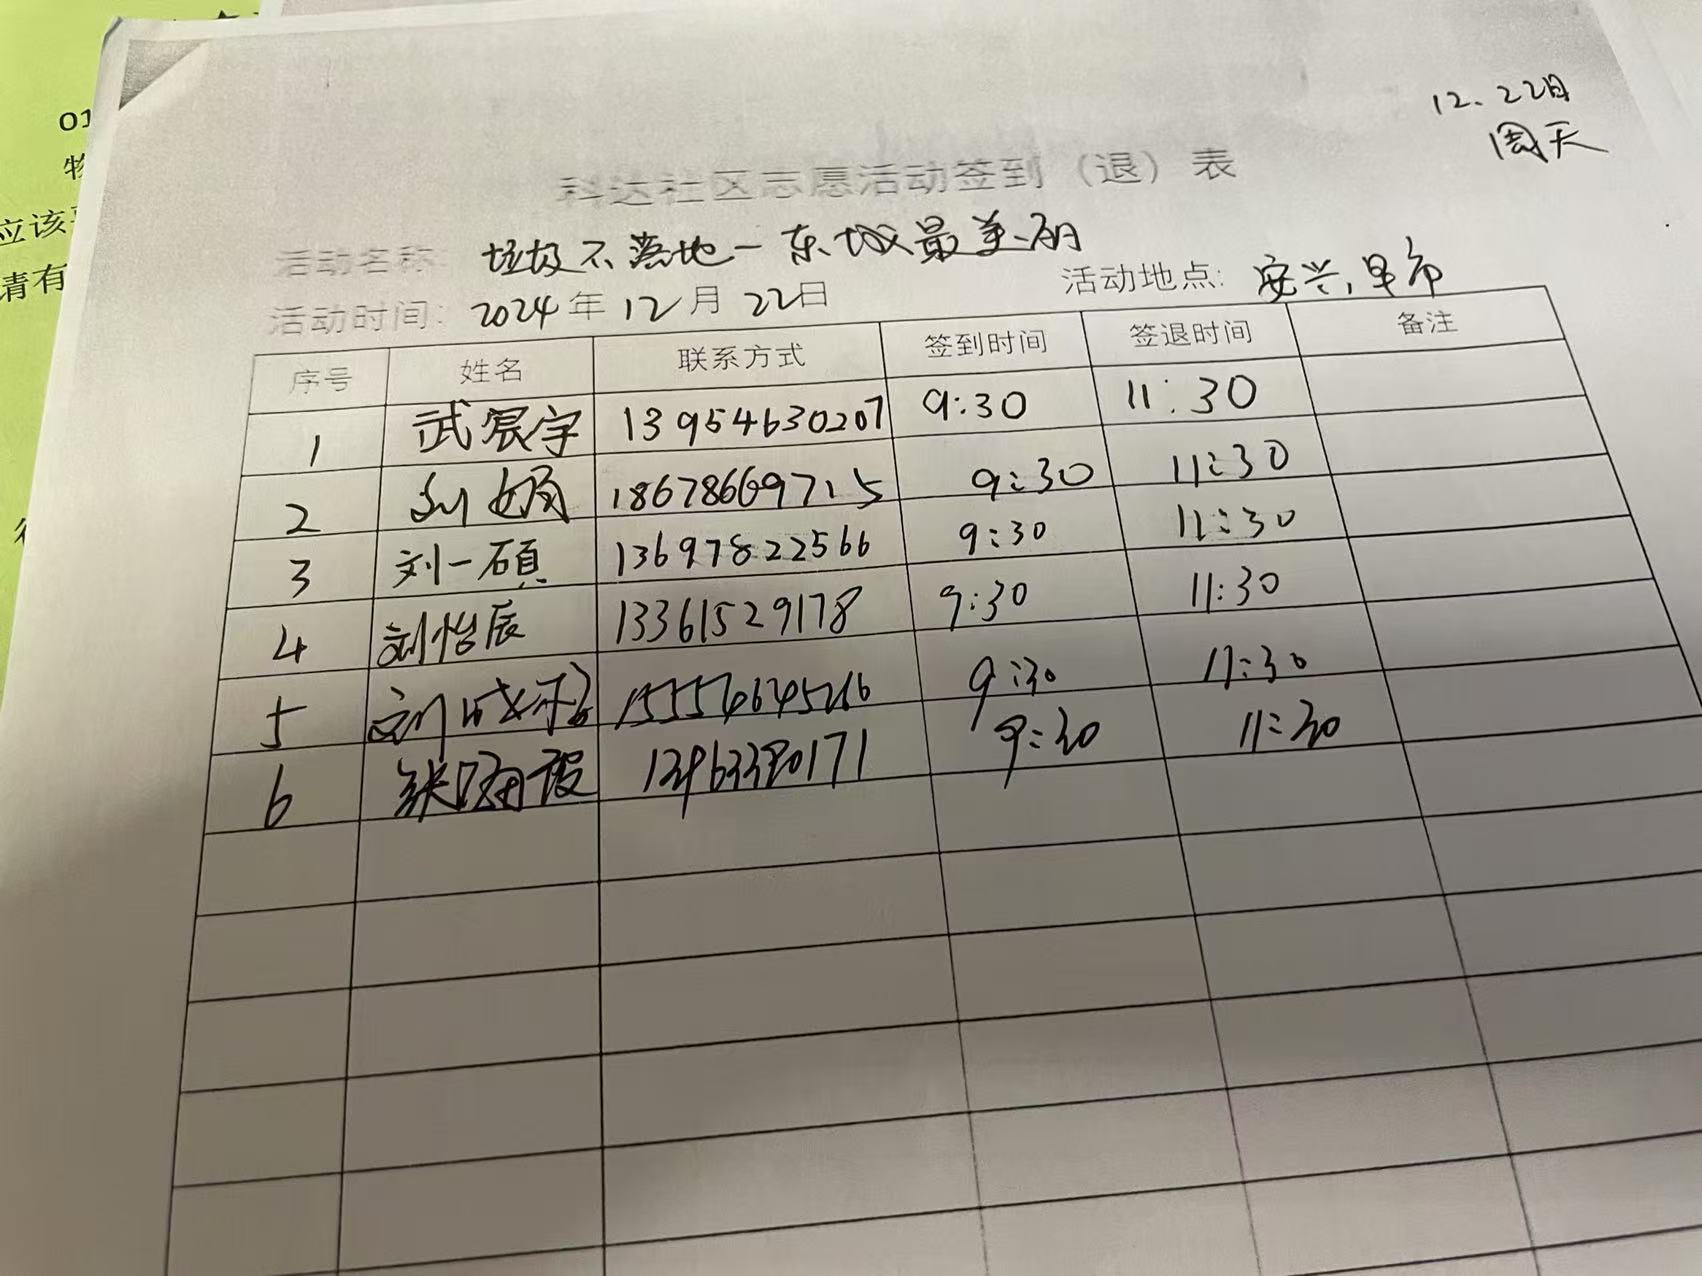 12.22日
周天
科达社区志愿活动签到（退）表
活动名称：垃圾不落地一东城最美丽
活动时间：2024年12月22日 活动地点：安兴，早市
序号 姓名 联系方式 签到时间 签退时间 备注
1 武宸宇 13954630207 9:30 11:30
2 刘娟 18678669715 9:30 11:30
3 刘一碩 13697822566 9:30 11:30
4 刘怡辰 13361529178 9:30 11:30
5 刘 9:30 11:30
6 9:30 11:30
01
物
应该
请有